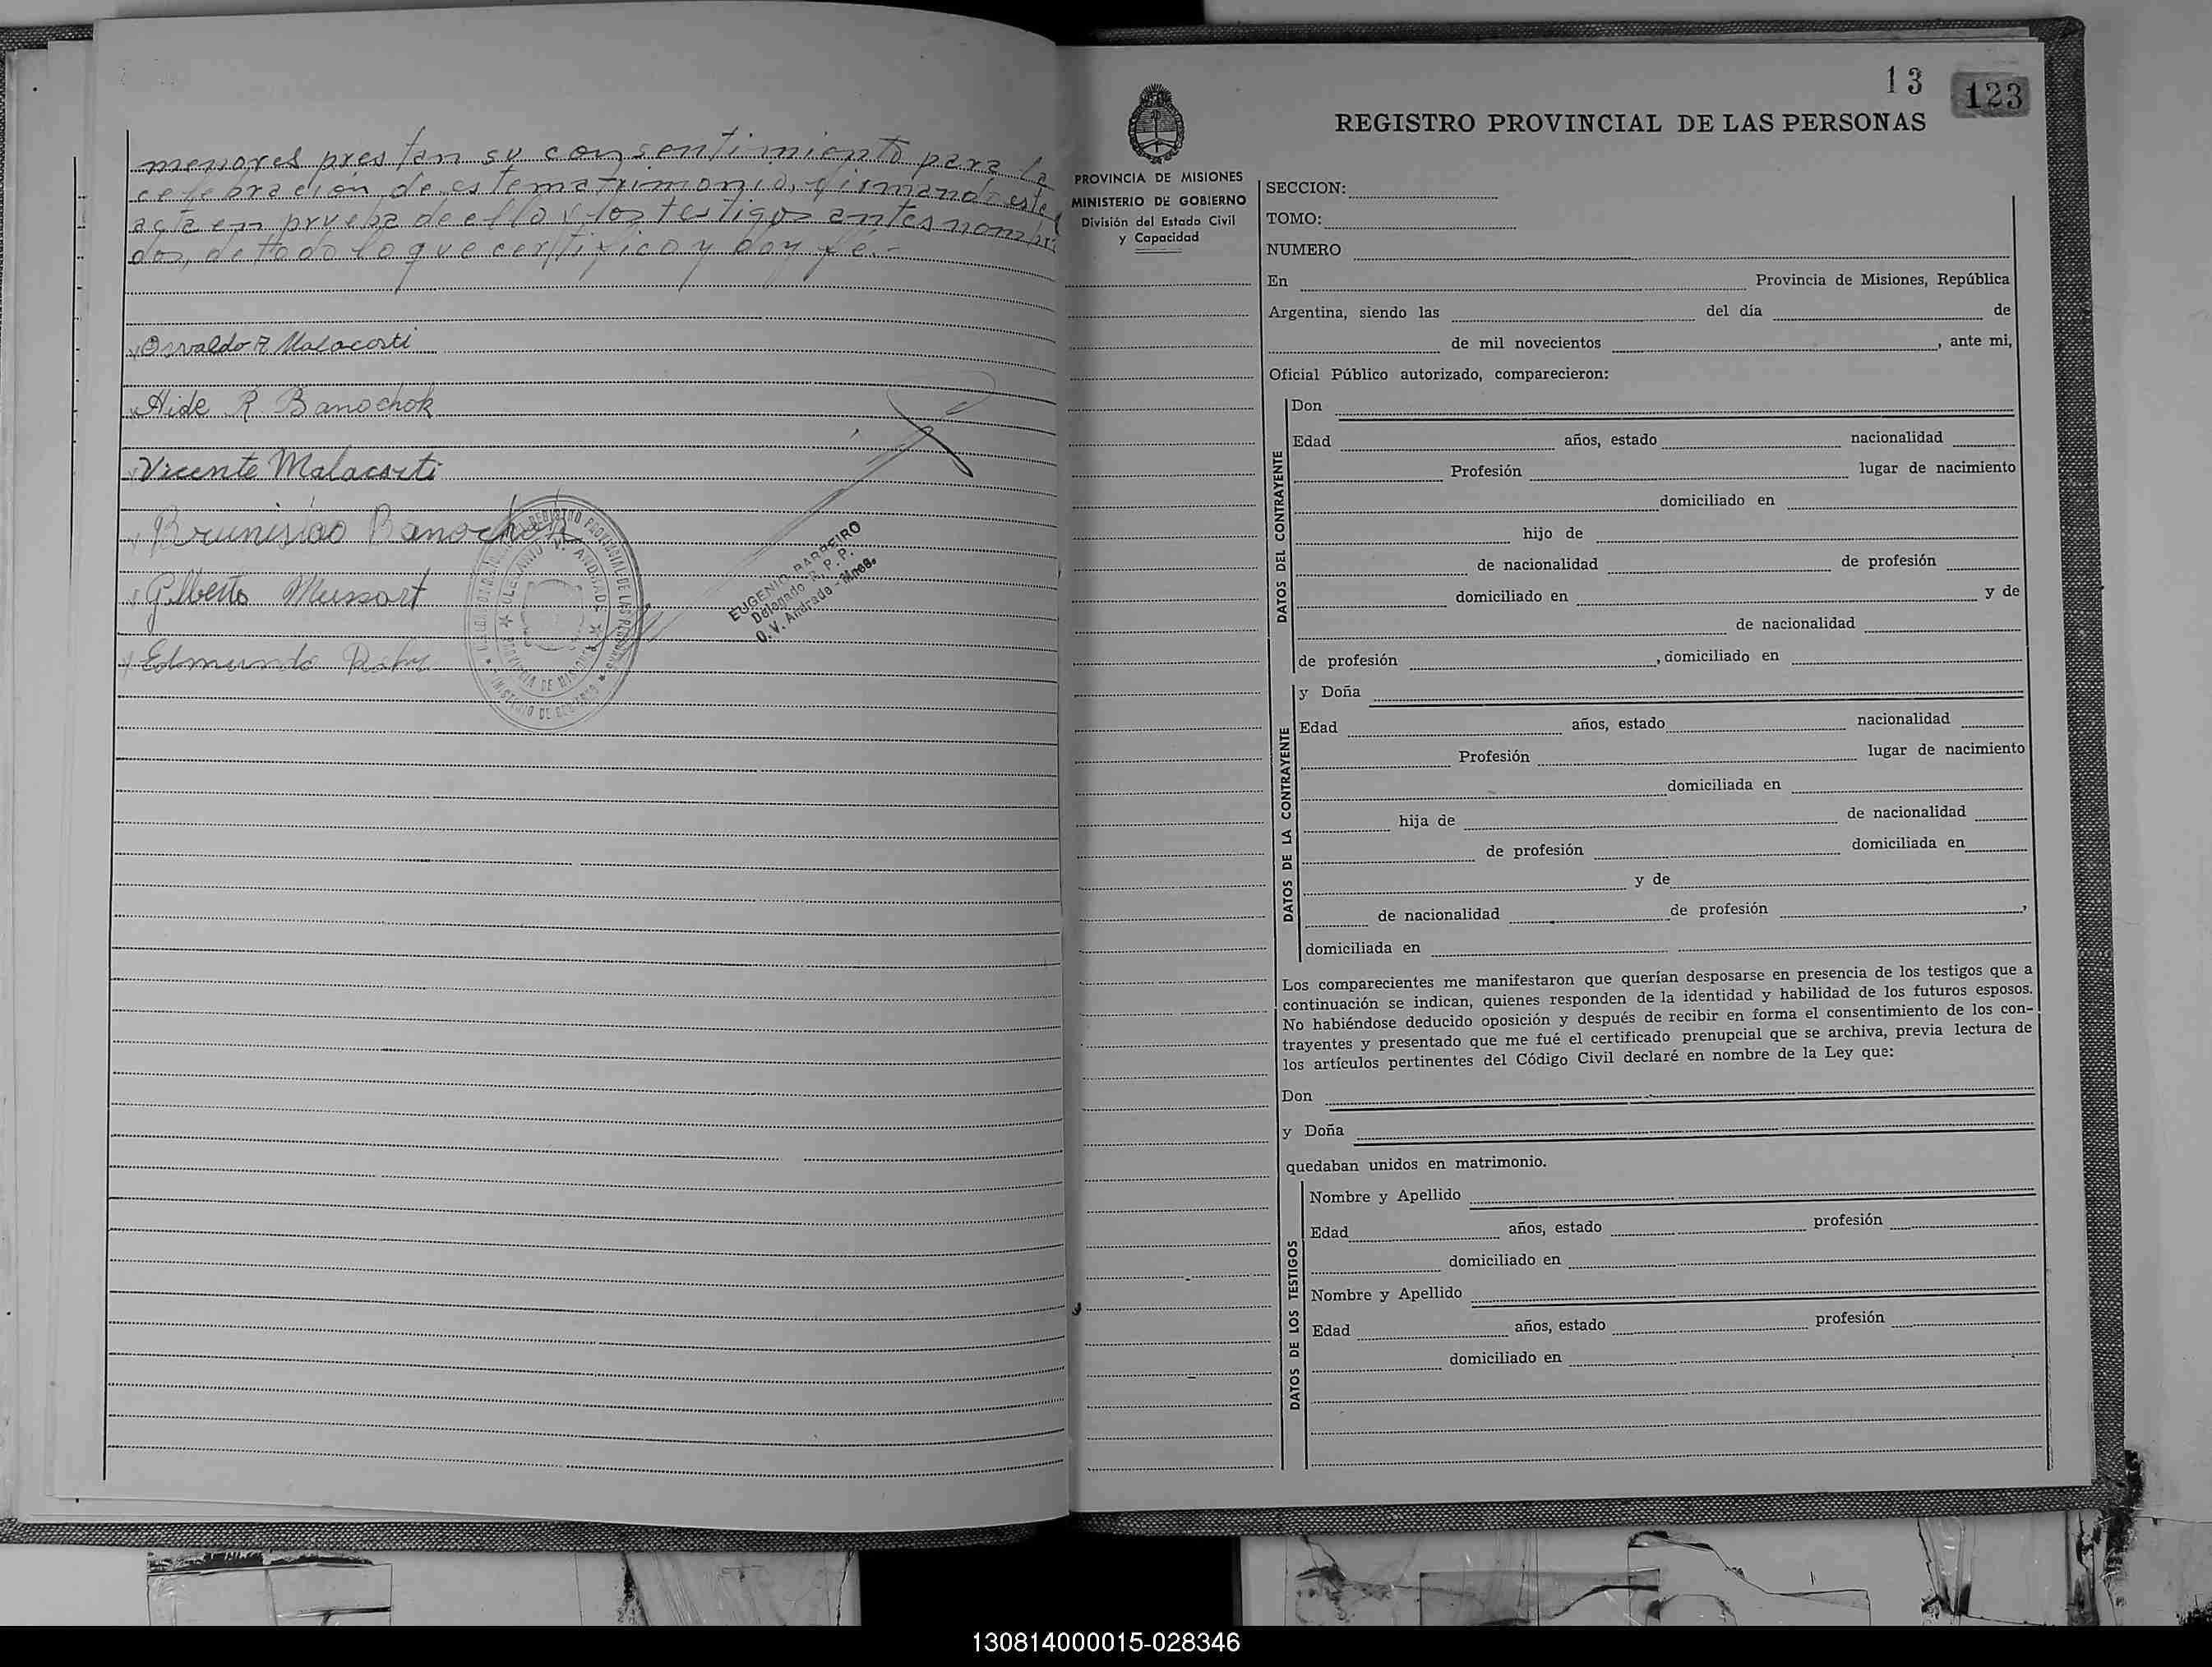 menores prestan su consentimiento para la
celebración de este matrimonio, firmando este
acta en prueba de ello y los testigos antes nombra
dos, de todo lo que certifico y doy fe.-
Osvaldo A Malacorti
Aide R. Banochok
Vicente Malacorti
Brunislao Banochok
Gilberto Mussart
Edmundo
EUGENIO BARREIRO
Delegado R. P. P.
O. V. Andrade - Mnes.
13
123
REGISTRO PROVINCIAL DE LAS PERSONAS
PROVINCIA DE MISIONES
MINISTERIO DE GOBIERNO
División del Estado Civil
y Capacidad
SECCION:
TOMO:
NUMERO
En Provincia de Misiones, República
Argentina, siendo las del día de
de mil novecientos , ante mi,
Oficial Público autorizado, comparecieron:
DATOS DEL CONTRAYENTE
Don
Edad años, estado nacionalidad
Profesión lugar de nacimiento
domiciliado en
hijo de
de nacionalidad de profesión
domiciliado en y de
de nacionalidad
de profesión , domiciliado en
DATOS DE LA CONTRAYENTE
y Doña
Edad años, estado nacionalidad
Profesión lugar de nacimiento
domiciliada en
hija de de nacionalidad
de profesión domiciliada en
y de
de nacionalidad de profesión ,
domiciliada en
Los comparecientes me manifestaron que querían desposarse en presencia de los testigos que a
continuación se indican, quienes responden de la identidad y habilidad de los futuros esposos.
No habiéndose deducido oposición y después de recibir en forma el consentimiento de los con-
trayentes y presentado que me fué el certificado prenupcial que se archiva, previa lectura de
los artículos pertinentes del Código Civil declaré en nombre de la Ley que:
Don
y Doña
quedaban unidos en matrimonio.
DATOS DE LOS TESTIGOS
Nombre y Apellido
Edad años, estado profesión
domiciliado en
Nombre y Apellido
Edad años, estado profesión
domiciliado en
130814000015-028346